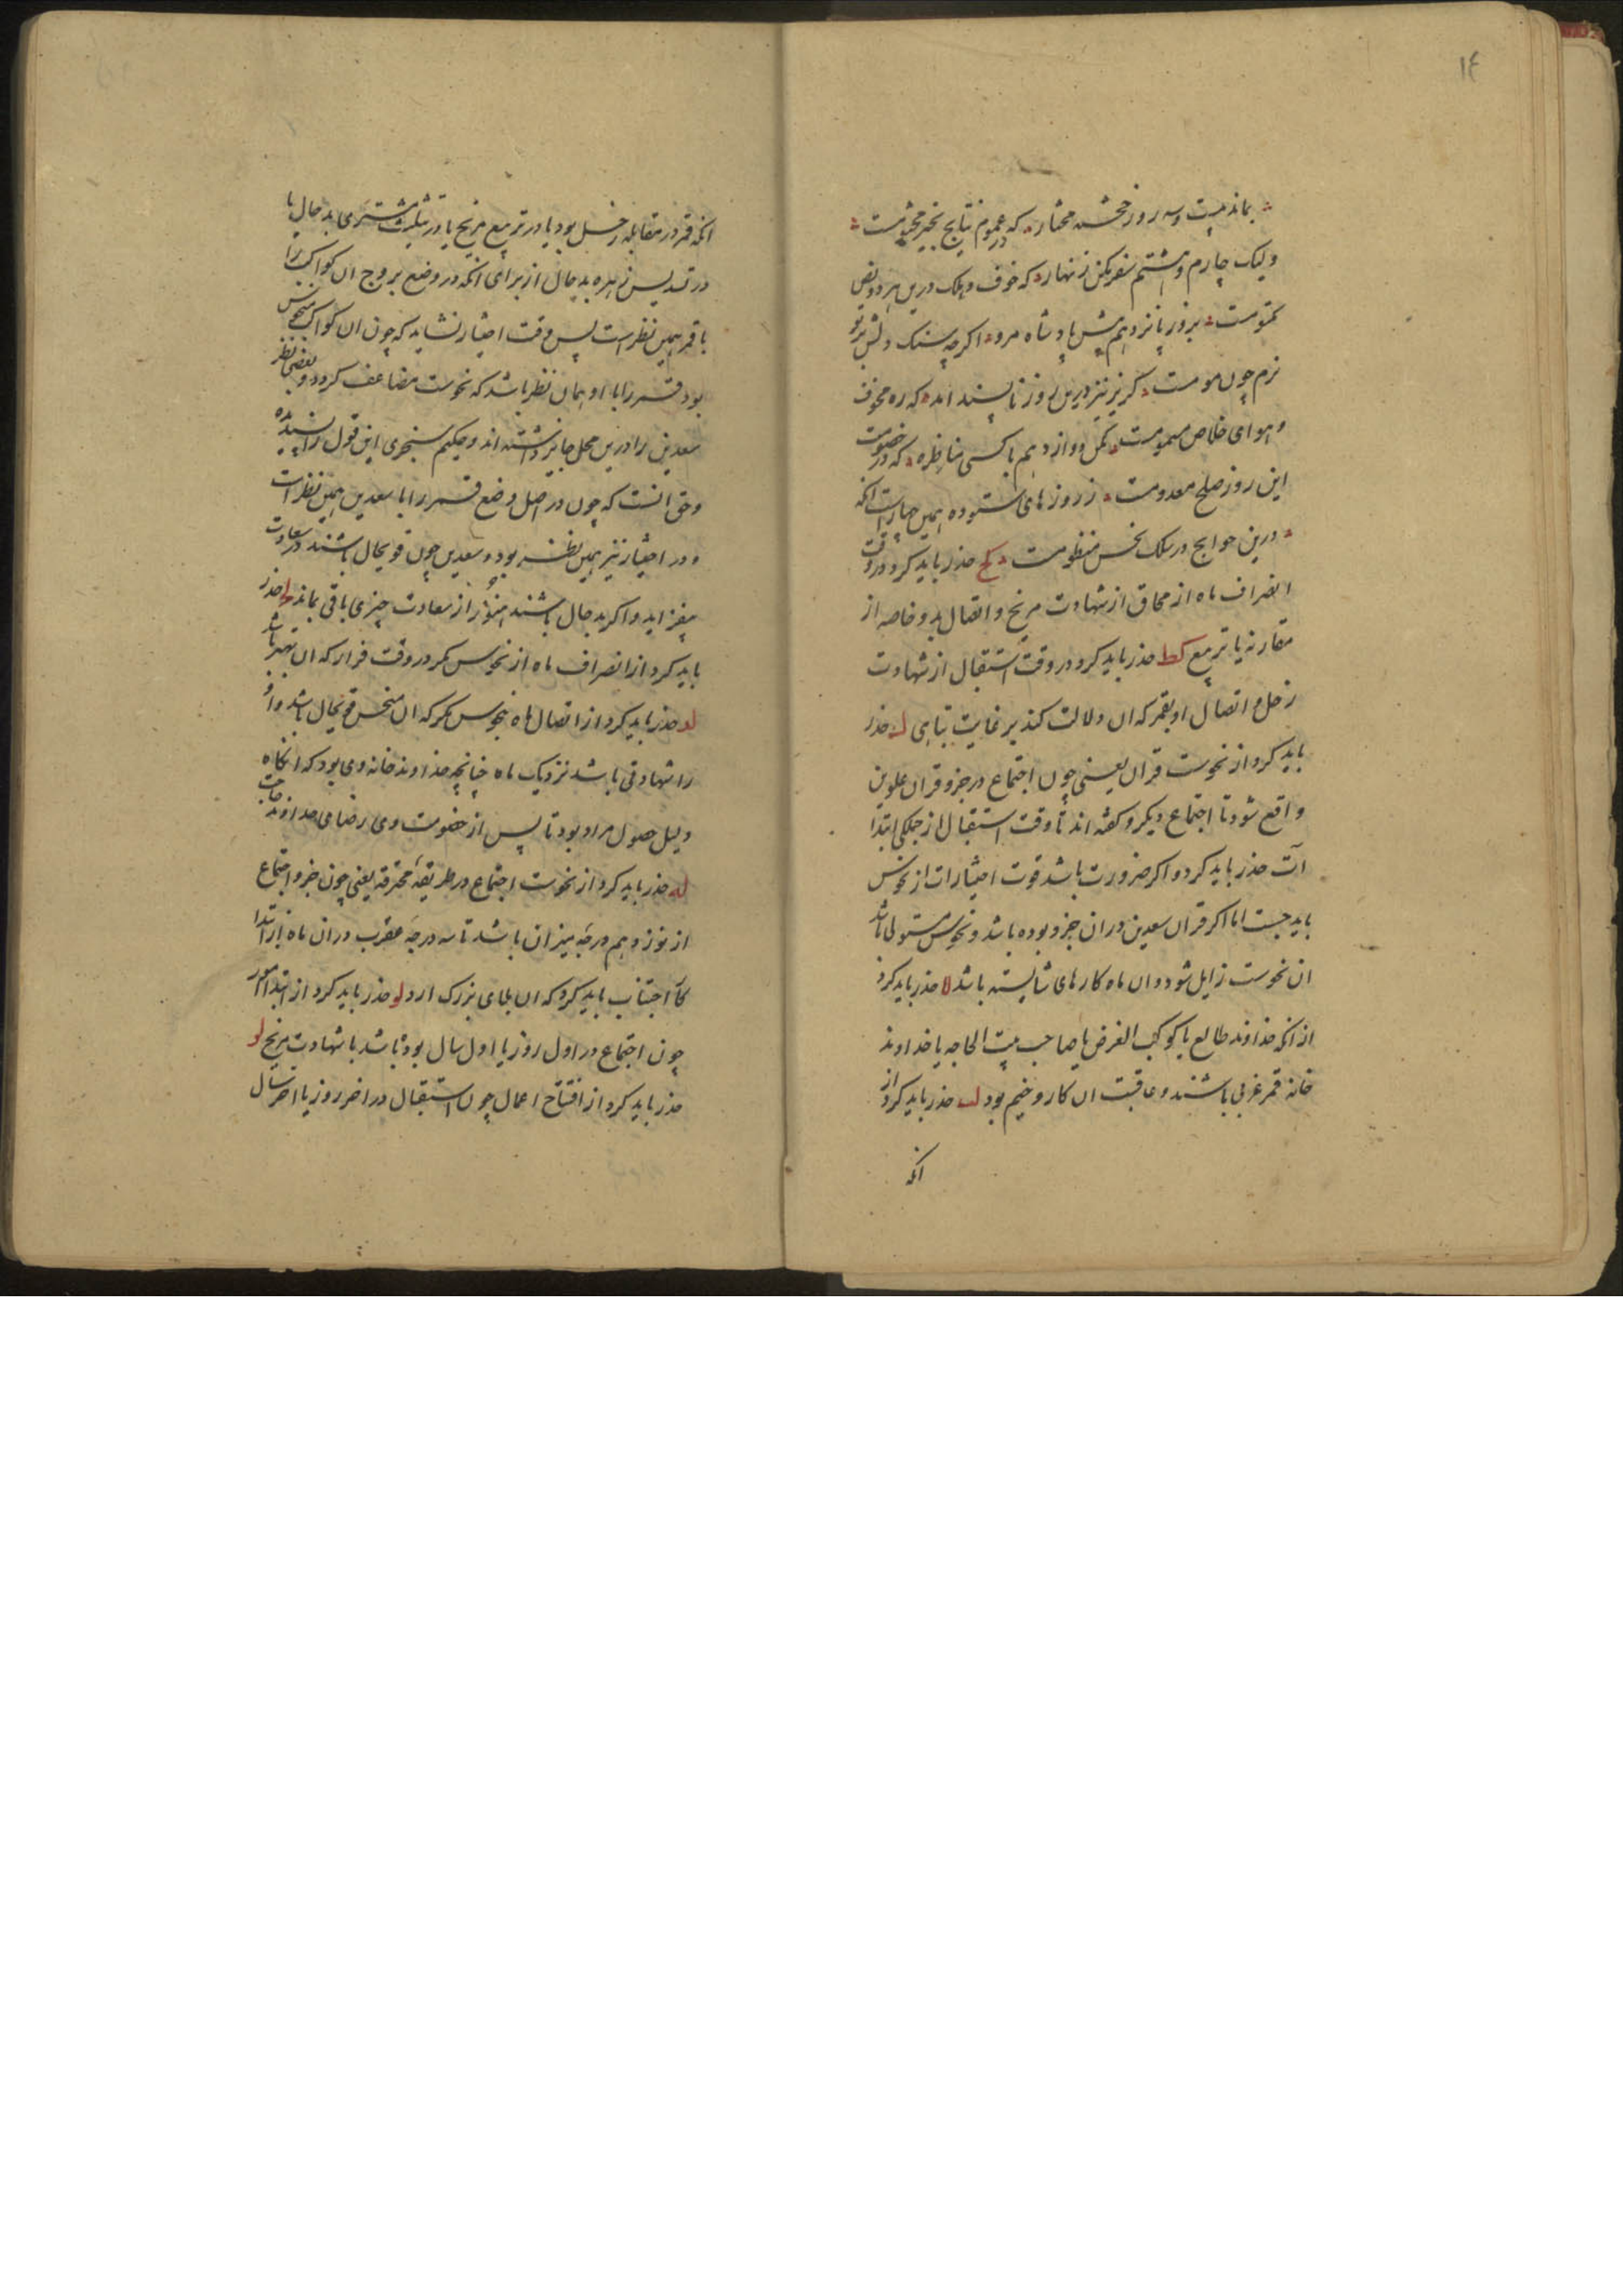 ۱۴
بماند بیست و سه روز خجسته مختار که در عموم نتایج بخیر مختومست
ولیک چارم و هشتم سفر مکن زنهار که خوف و هلک درین هر دو نص
مکتومست بروز پانزدهم پیش پادشاه مرو اکرچه سنک دلش بر تو
نرم چون مومست کریز نیز درین روز ناپسند امد که ره مخوف
و هوای خلاص مسمومست مکن دوازدهم با کسی مناظره که در خصومت
این روز صلح معدومست ز روزهای ستوده همین چهار است انکه
درین حوایج در سلک نحس منظومست کح حذر باید کرد در وقت
انصراف ماه از محاق از شهادت مریخ و اتصال بدو خاصه از
مقارنه یا تربیع کط حذر باید کرد در وقت استقبال از شهادت
زحل و اتصال او بقمر که ان دلالت کند بر غایت تباهی ل حذر
باید کرد از نحوست قران یعنی چون اجتماع در جزو قران علوین
واقع شود تا اجتماع دیکر و کفته اند تا وقت استقبال از جملکی ابتدا
آت حذر باید کرد و اکر ضرورت باشد قوت اختیارات از نحوس
باید جست اما اکر قران سعدین دران جزو بوده باشد و نحوس مستولی باشد
ان نحوست زایل شود و ان ماه کارهای شایسته باشد لا حذر باید کرد
از انکه خداوند طالع یا کوکب الغرض یا صاحب بیت الحاجه یا خداوند
خانه قمر غربی باشند و عاقبت ان کار وخیم بود لب حذر باید کرد از
انکه
انکه قمر در مقابله زحل بود یا در تربیع مریخ یا در تثلیث مشتری بدحال یا
در تسدیس زهره بدحال از برای انکه در وضع بروج ان کواکب را
با قمر همین نظر است پس وقت اختیار نشاید که چون ان کواکب منحوس
بود قمر را با او همان نظر باشد که نحوست مضاعف کردد و بعضی نظر
سعدین را درین محل جایز داشته اند و حکیم سنجری این قول را پسندیده
و حق انست که چون در اصل وضع قمر را با سعدین همین نظر است
و در اختیار نیز همین نظر بود و سعدین چون قوی حال باشند در سعادت
بیفزاید و اکر بدحال باشند هنوز از سعادت چیزی باقی بماند لج حذر
باید کرد از انصراف ماه از نحوس مکر در وقت فرار که ان بهتر باشد
لد حذر باید کرد از اتصال ماه بنحوس مکر که ان منحس قوی حال باشد و او
را شهادتی باشد نزدیک ماه چنانچه خداوند خانه وی بود که انکاه
دلیل حصول مراد بود تا پس از خصومت وی رضای خداوند حاجت
له حذر باید کرد از نحوست اجتماع در طریقهٔ محترقه یعنی چون جزو اجتماع
از نوزدهم درجه میزان باشد تا سه درجه عقرب دران ماه از ابتدا
کآ اجتناب باید کرد که ان بلای بزرک ارد لو حذر باید کرد از ابتدا امور
چون اجتماع در اول روز یا اول سال بوده باشد با شهادت مریخ لز
حذر باید کرد از افتتاح اعمال چون استقبال در اخر روز یا اخر سال